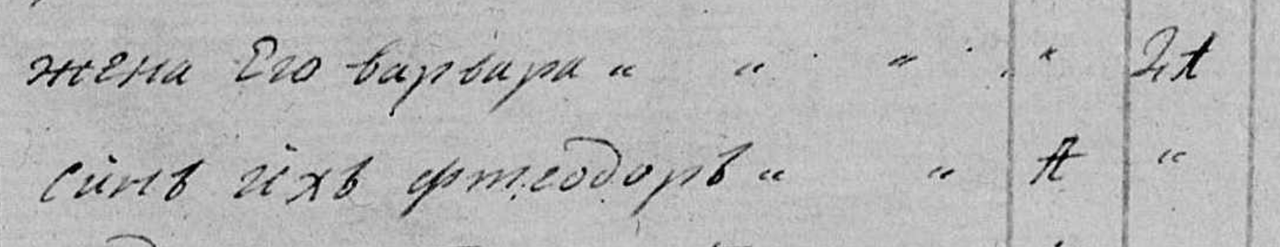 жена Его варвара „ „ „ „
синъ ихъ фтеодоръ „ „ „